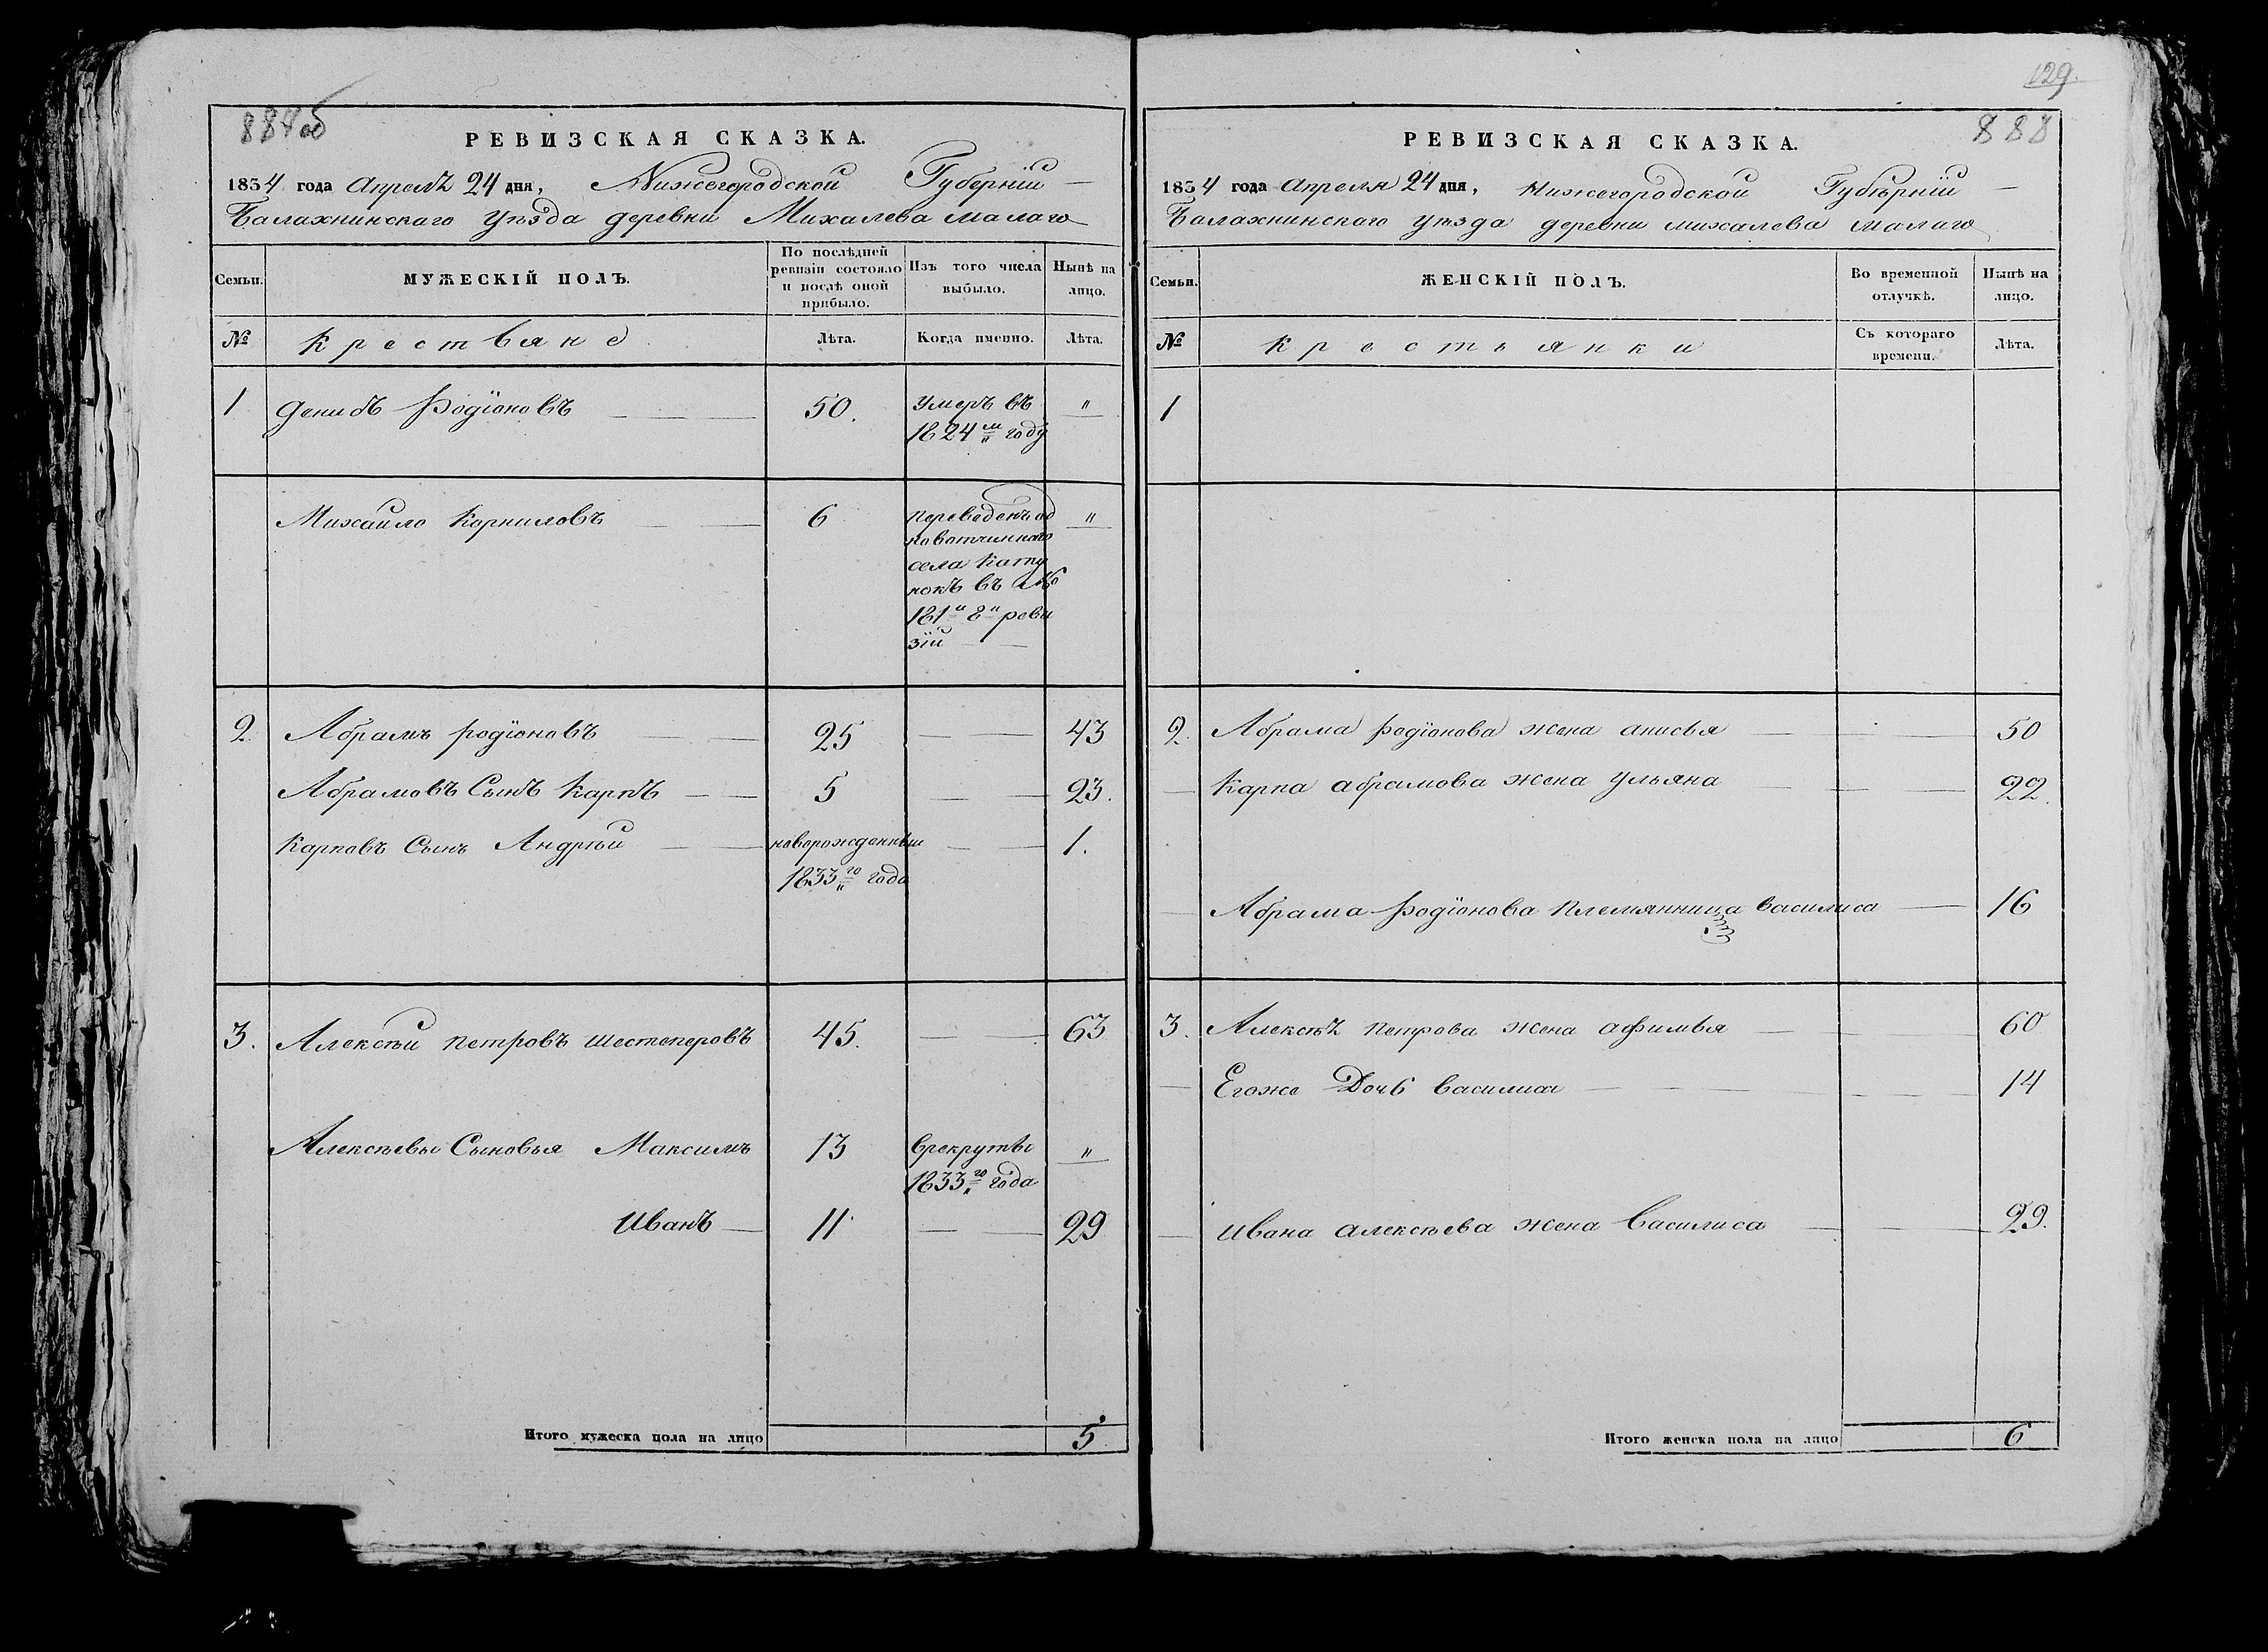 887 об
РЕВИЗСКАЯ СКАЗКА.
1834 года Апреля 24 дня, Нижегородской Губерніи
Балахнинскаго Уѣзда деревни Михалева малаго
Семьи.
МУЖЕСКІЙ ПОЛЪ.
По послѣдней
ревизіи состояло
и послѣ оной
прибыло.
Изъ того числа
выбыло.
Нынѣ на
лицо.
№
Крестьяне
Лѣта.
Когда именно.
Лѣта.
1 Денисъ Родіоновъ 50. Умеръ въ "
1824м году
Михаило Корниловъ 6 переведенъ од "
новотчинного
села Кату
нокъ въ №
181й 8й реви
зіи
2 Абрамъ родіоновъ 25 43
Абрамовъ Сынъ Карпъ 5 23.
Карповъ Сынъ Андрѣй новорожденный 1.
1833го года
3. Алексѣй петровъ шестеперовъ 45. 63
Алексѣевы Сыновья Максимъ 13 врекруты "
1833го года
Иванъ 11 29
Итого мужеска пола на лицо 5
129.
888
РЕВИЗСКАЯ СКАЗКА.
1834 года Апреля 24 дня, Нижегородской Губѣрніи
Балахнинского Уѣзда деревни михалева малаго
Семьи.
ЖЕНСКІЙ ПОЛЪ.
Во временной
отлучкѣ.
Нынѣ на
лицо.
№
Крестьянки
Съ котораго
времени.
Лѣта.
1
2. Абрама родіонова жена анисья 50
Карпа абрамова жена Ульяна 22.
Абрама Родіонова племянница василиса 16
3. Алексѣя петрова жена афимья 60
Егоже Дочь василиса 14
Ивана алексѣева жена Василиса 29.
Итого женска пола на лицо 6